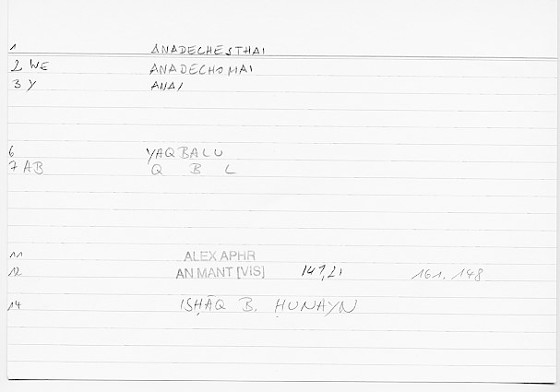 1 ANADECHESTHAI
2 WE ANADECHOMAI
3 Y ANAI
6 YAQBALU
7 AB Q B L
11 ALEX APHR
12 AN MANT [VIS] 141,21 161. 148
14 ISḤĀQ B. ḤUNAYN